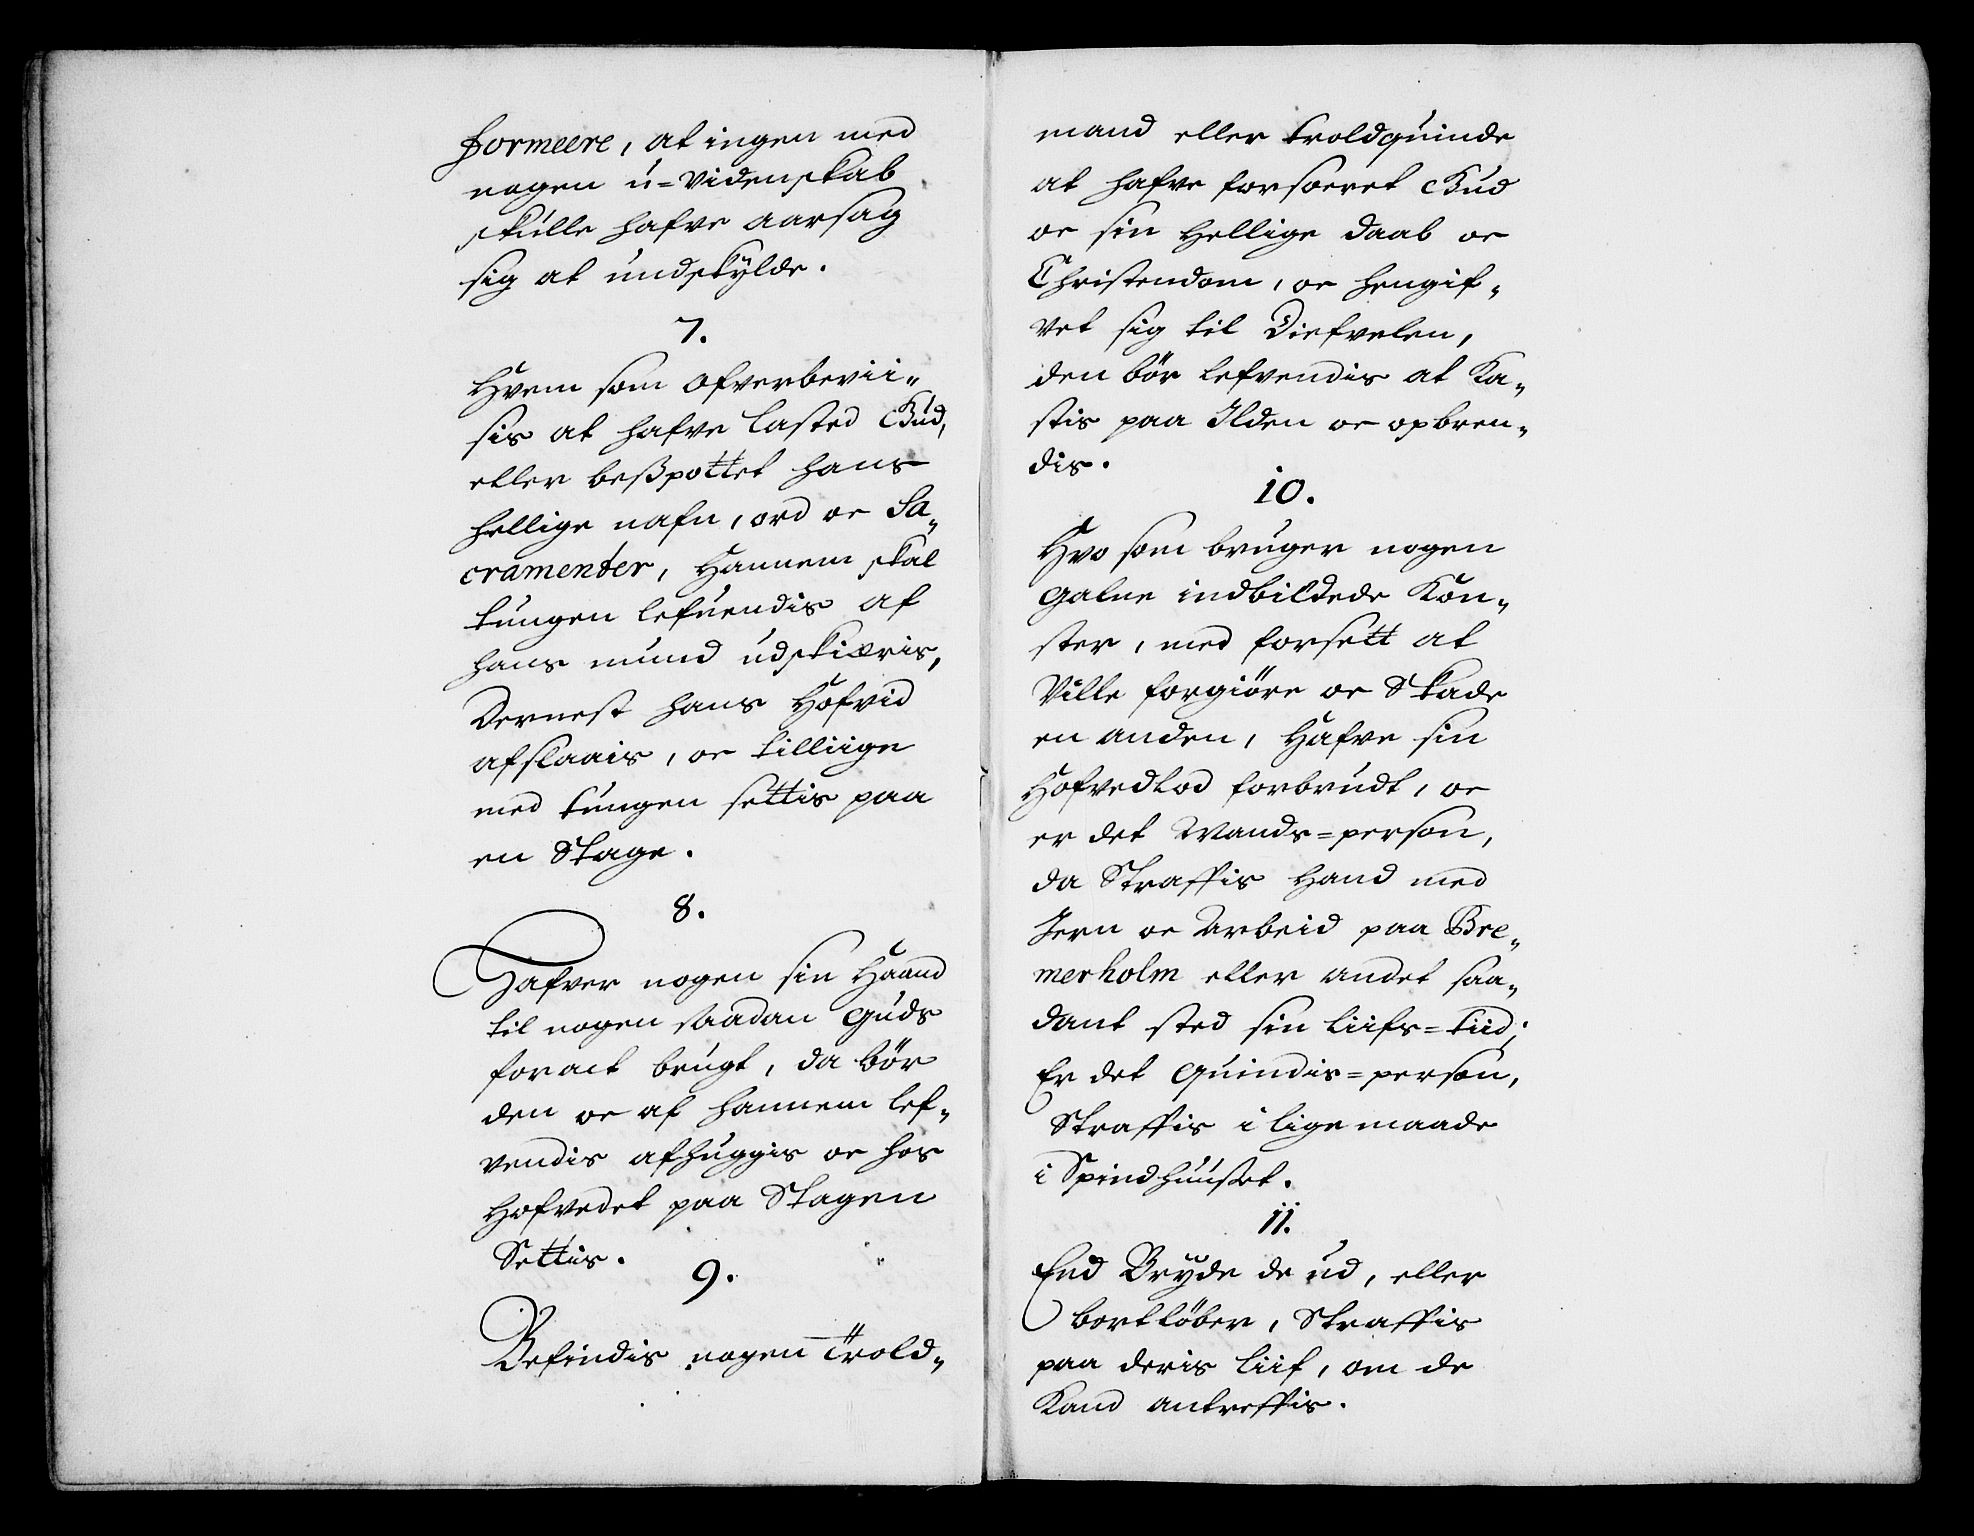 formeere, at ingen med
nogen u=videnskab
skulle hafve aarsag
sig at undskylde.
7.
Hvem som ofverbevii„
sis at hafve lasted Gud,
eller beßpottet hans
hellige nafn, ord oc Sa„
cramenter, Hannem skal
tungen lefuendis af
hans mund udskiæris,
Dernest hans Hofvid
afslaais, oc tilliige
med tungen settis paa
en Stage.
8.
Hafver nogen sin Haand
til nogen saadan Guds
foract brugt, da bör
den oc af hannem lef„
vendis afhuggis oc hos
Hofvedet paa Stagen
Settis.
9.
Befindis nogen Trold„
mand eller troldquinde
at hafve forsoeret Gud
oc sin Hellige daab oc
Christendom, oc hengif„
vet sig til Diefvelen,
den bör lefvendis at Ka„
stis paa Ilden oc opbren„
dis.
10.
Hvo som bruger nogen
galne indbildede Kon„
ster, med forsett at
Ville forgiöre oc Skade
en anden, Hafve sin
Hofvedlod forbrudt, oc
er det Mands=person,
da Straffis Hand med
Jern oc Arbeid paa Bre„
merholm eller andet saa„
dant sted sin Liifs=tiid;
Er det Quindis=person,
Straffis i lige maade
i Spindhuuset.
11.
End Bryde de ud, eller
bortlöber, Straffis
paa deris liif, om de
Kand antreffis.